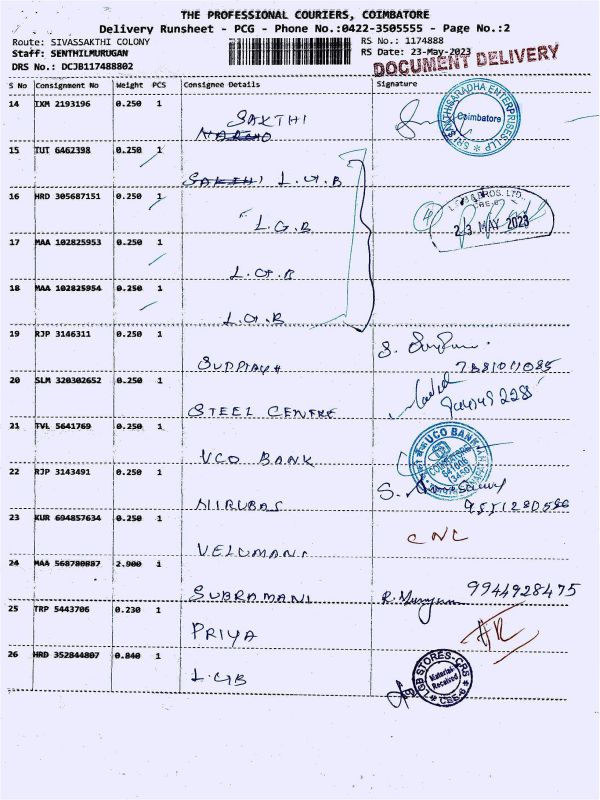 THE PROFESSIONAL COURIERS, COIMBATORE
Delivery Runsheet - PCG - Phone No.:0422-3505555 - Page No.:2
Route: SIVASSAKTHI COLONY RS No.: 1174888
Staff: SENTHILMURUGAN RS Date: 23-May-2023
DRS No.: DCJB117488802 DOCUMENT DELIVERY
S No Consignment No Weight PCS Consignee Details Signature
14 IXM 2193196 0.250 1 SAKTHI
SRI SAKTHISARADHA ENTERPRISES LLP Coimbatore
15 TUT 6462398 0.250 1 SAKTHI L.G.B
16 HRD 305687151 0.250 1 L.G.B
BROS. LTD.
CBE-6
23 MAY 2023
17 MAA 102825953 0.250 1 L.G.B
18 MAA 102825954 0.250 1 L.G.B
19 RJP 3146311 0.250 1 SUPPIAH
20 SLM 320302652 0.250 1 STEEL CENTRE
21 TVL 5641769 0.250 1 UCO BANK
UCO BANK COIMBATORE 641006
22 RJP 3143491 0.250 1 NIRUBAS
23 KUR 694857634 0.250 1 VELUMANI CNL
24 MAA 568780887 2.900 1 SUBRAMANI R. Murugan 9944928475
25 TRP 5443706 0.230 1 PRIYA
26 HRD 352844807 0.840 1 LGB
LGB STORES-CRS Material Received CBE-6